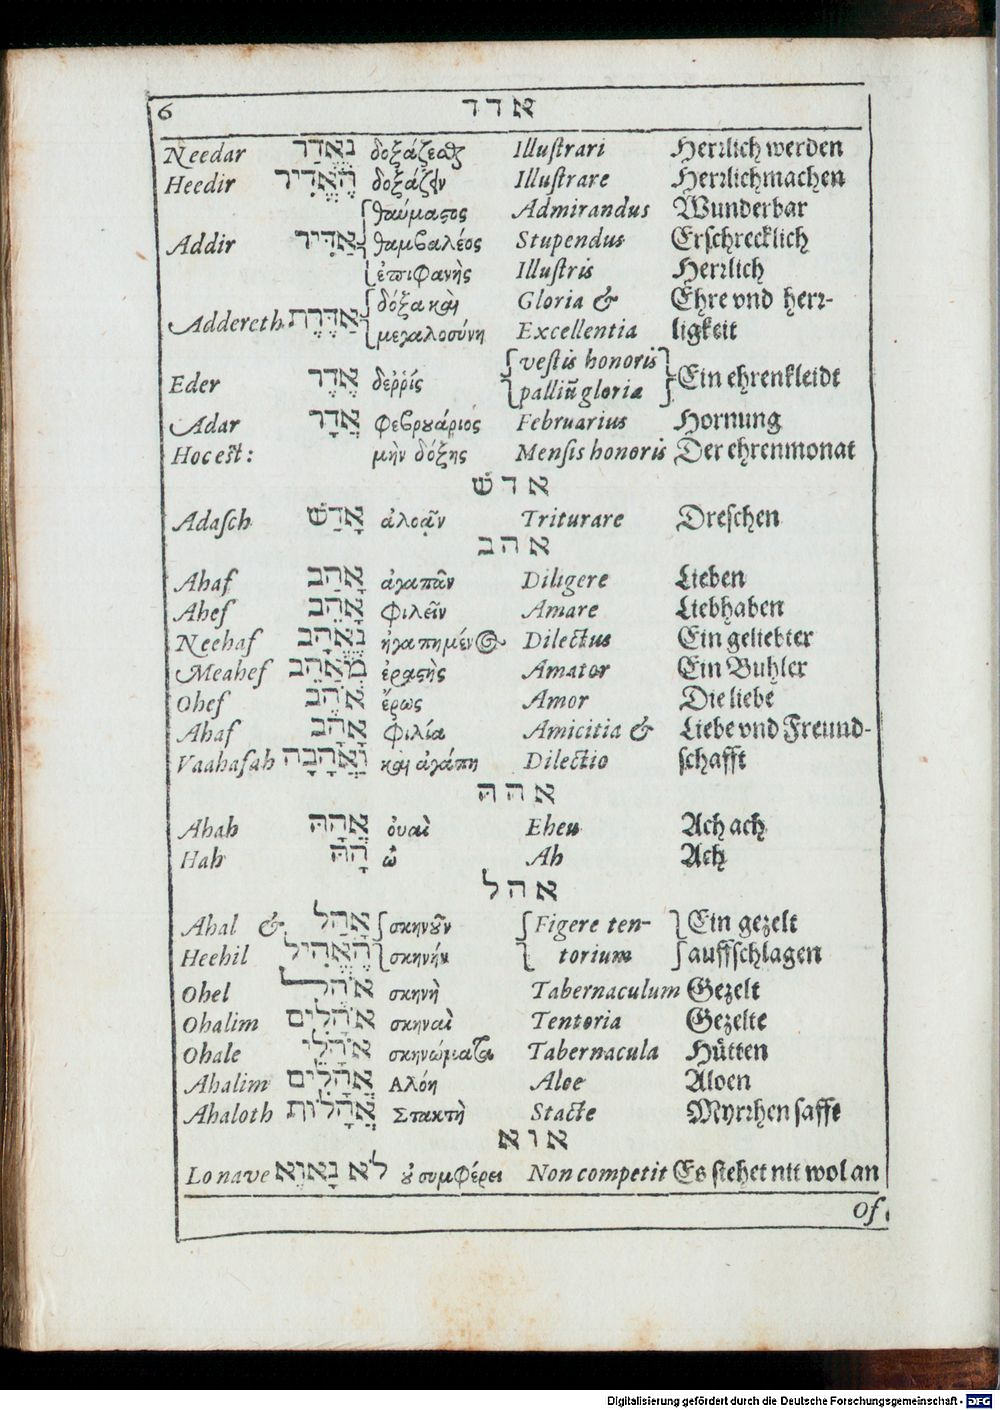 6 אדר
Needar נֶאְדַּר δοξάζεσθαι Illustrari Herrlich werden
Heedir הֶאֱדִיר δοξάζειν Illustrare Herrlichmachen
θαύμαστος Admirandus Wunderbar
Addir אַדִּיר θαμβαλέος Stupendus Erschrecklich
ἐπιφανὴς Illustris Herrlich
δόξα καὶ Gloria & Ehre vnd herr-
Addereth אַדֶּרֶת μεγαλοσύνη Excellentia ligkeit
vestis honoris
Eder אֶדֶר δεῤῥίς palliũ gloriæ Ein ehrenkleidt
Adar אֲדָר Φεβρυάριος Februarius Hornung
Hoc est: μὴν δόξης Mensis honoris Der ehrenmonat
אדשׁ
Adasch אָדַשׁ ἀλοᾷν Triturare Dreschen
אהב
Ahaf אָהַב ἀγαπᾶν Diligere Lieben
Ahef אָהֵב φιλεῖν Amare Liebhaben
Neehaf נֶאֱהָב ἠγαπημένος Dilectus Ein geliebter
Meahef מְאַהֵב ἐραστὴς Amator Ein Buhler
Ohef אֹהֵב ἔρως Amor Die liebe
Ahaf אָהַב φιλία Amicitia & Liebe vnd Freund-
Vaahafah וְאַהֲבָה καὶ ἀγάπη Dilectio schafft
אהה
Ahah אֲהָהּ ὀυαὶ Eheu Ach ach
Hah הָהּ ὦ Ah Ach
אהל
Ahal & אָהַל σκηνοῦν Figere ten- Ein gezelt
Heehil הֶאֱהִיל σκηνῇν torium auffschlagen
Ohel אֹהֶל σκηνὴ Tabernaculum Gezelt
Ohalim אֹהָלִים σκηναὶ Tentoria Gezelte
Ohale אֹהָלֵי σκηνώματα Tabernacula Hütten
Ahalim אֲהָלִים Αλόη Aloe Aloen
Ahaloth אֲהָלוֹת Στακτὴ Stacte Myrrhen safft
אוא
Lo nave לֹא נָאוֶא οὐ συμφέρει Non competit Es stehet nit wol an
Of.
Digitalisierung gefördert durch die Deutsche Forschungsgemeinschaft - DFG